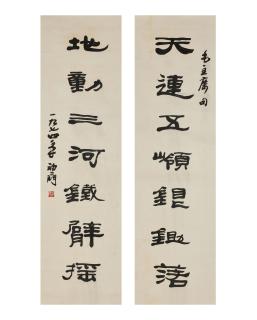 毛主席句
天連五嶺銀鋤落
地動三河鐵臂摇
一九七四年